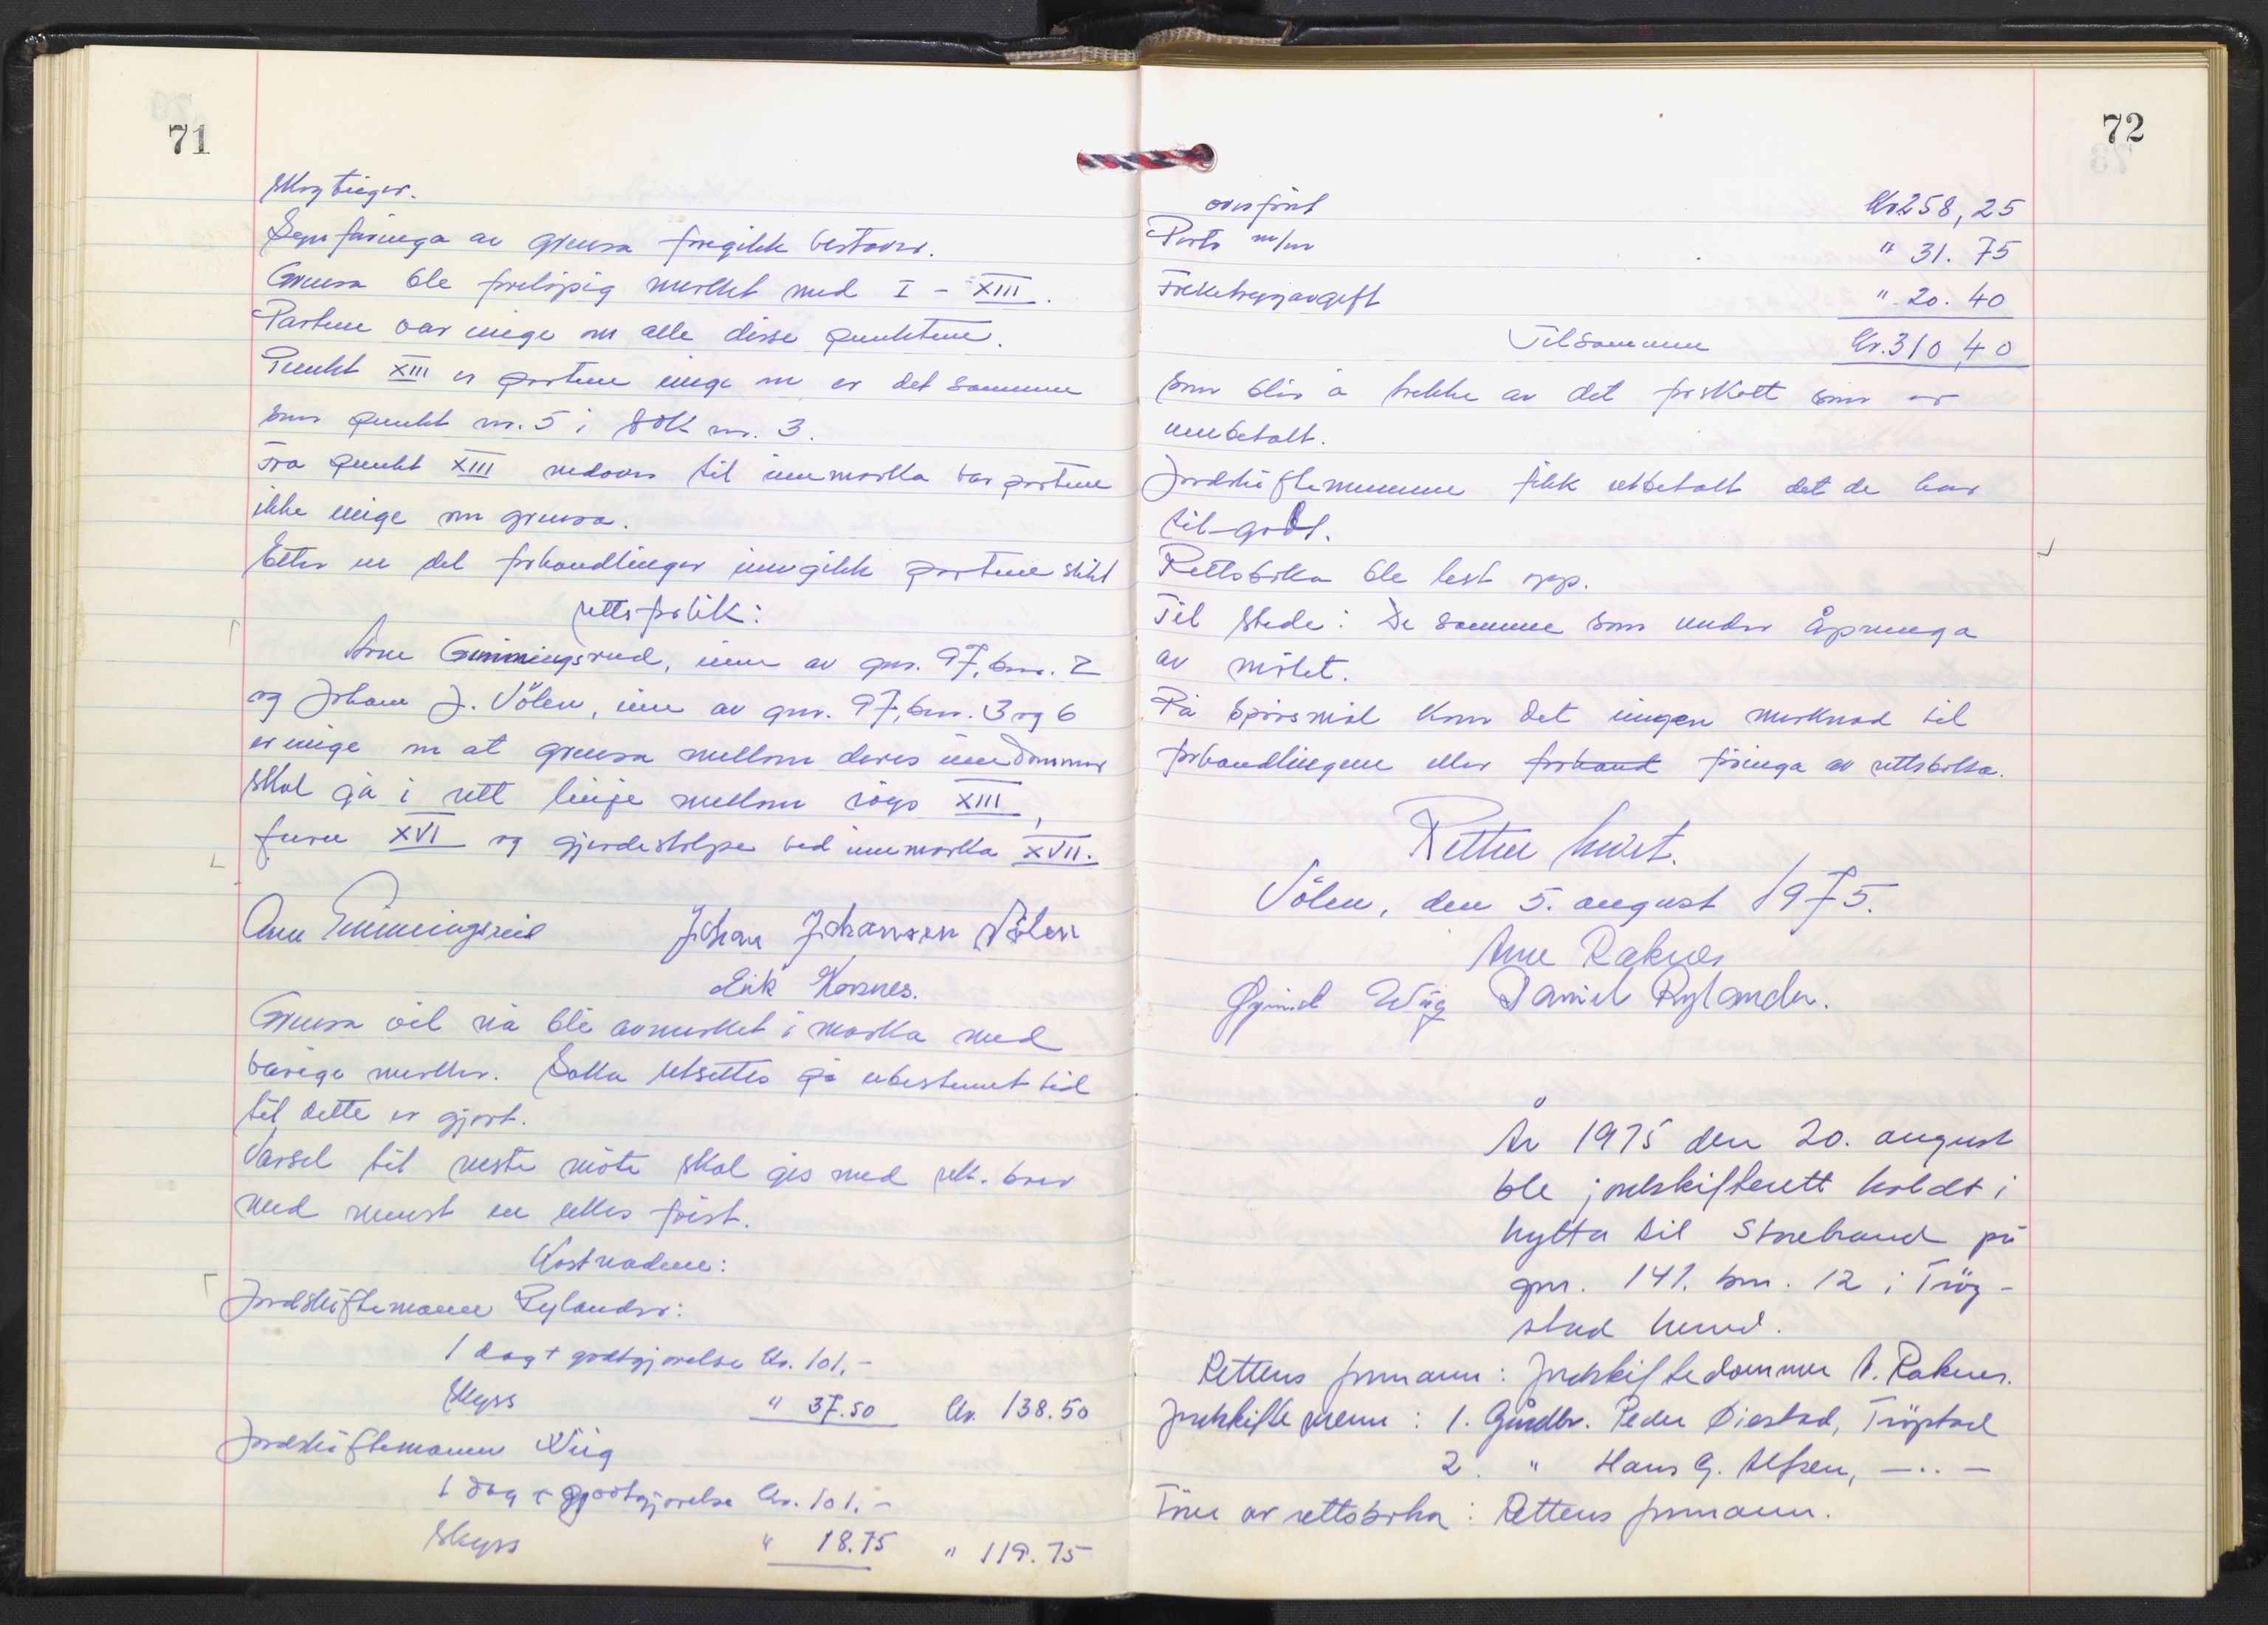 71
skogteiger.
Synfaringa av grensa foregikk vestover.
Grensa ble foreløpig merket med I - XIII.
Partene var enige om alle disse punktene.
Punkt XIII er partene enige om er det samme
som punkt nr. 5 i dok nr. 3.
Fra punkt XIII nedover til innmarka var partene
ikke enige om grensa.
Etter en del forhandlinger inngikk partene slikt
rettsforlik:
Arne Gimmingsrud, eier av gnr. 97, bnr. 2
og Johan J. Vølen, eier av gnr. 97, bnr. 3 og 6
er enige om at grensa mellom deres eiendommer
skal gå i rett linje mellom røys XIII,
furu XVI og gjerdestolpe ved innmarka XVII.
Arne Gimmingsrud Johan Johansen Vølen
Erik Korsnes.
Grensa vil nå bli avmerket i marka med
varige merker. Saka utsettes på ubestemt tid
til dette er gjort.
Varsel til neste møte skal gis med rek. brev
med minst en ukes frist.
Kostnadene:
Jordskiftemann Rylander:
1 dag + godtgjørelse kr. 101.-
Skyss " 37.50 kr. 138.50
Jordskiftemann Wiig
1 dag + godtgjørelse kr. 101.-
Skyss " 18.75 " 119.75
72
overført kr 258,25
Porto m/m " 31.75
Folketrygdavgift " 20.40
Tilsammen kr. 310,40
som blir å trekke av det forskott som er
innbetalt.
Jordskiftemennene fikk utbetalt det de har
til-godt.
Rettsboka ble lest opp.
Til stede: De samme som under åpninga
av møtet.
På spørsmål kom det ingen merknad til
forhandlingene eller forhand føringa av rettsboka.
Retten hevet.
Vølen, den 5. august 1975.
Arne Raknes
Øyvind Wiig Daniel Rylander.
År 1975 den 20. august
ble jordskifterett holdt i
hytta til Storebrand på
gnr. 141. bnr. 12 i Trøg-
stad herred.
Rettens formann: Jordskiftedommer A. Raknes.
Jordskiftemenn: 1. Gårdbr. Peder Øiestad, Trøgstad
2. " Hans G. Alfsen, -..-
Fører av rettsboka: Rettens formann.